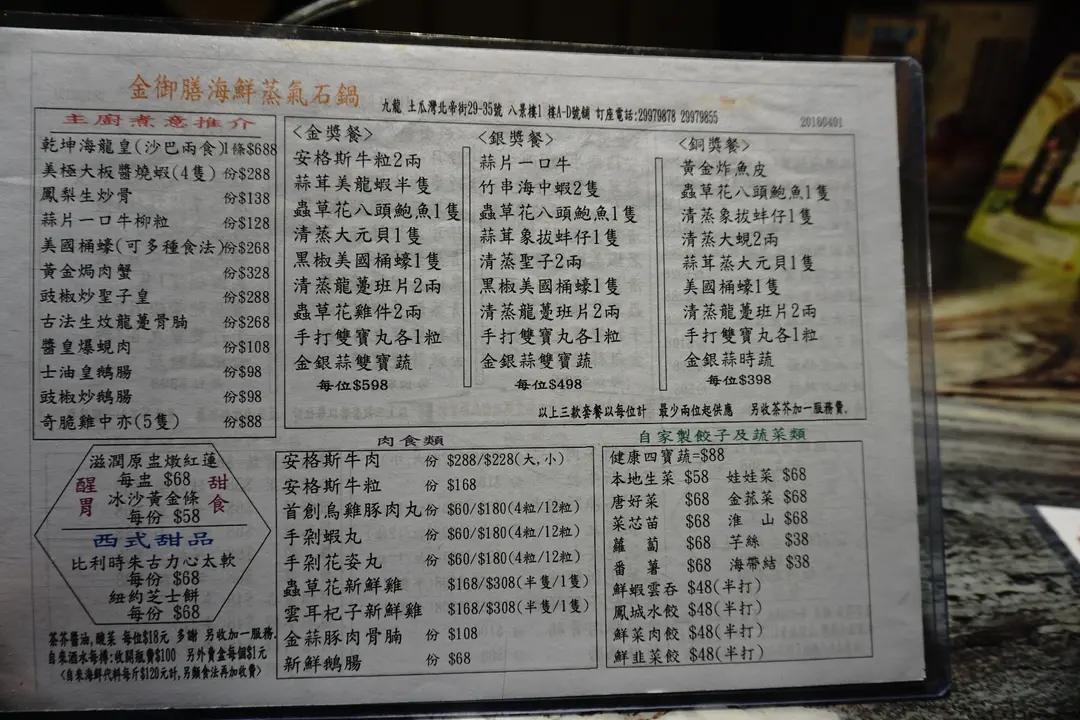 金御膳海鮮蒸氣石鍋
九龍 土瓜灣北帝街29-35號 八景樓1 樓A-D號舖 訂座電話:29979878 29979855
20180401
主廚煮意推介
乾坤海龍皇(沙巴兩食)1條$688
美極大板醬燒蝦(4隻) 份$288
鳳梨生炒骨 份$138
蒜片一口牛柳粒 份$128
美國桶蠔(可多種食法)份$268
黃金焗肉蟹 份$328
豉椒炒聖子皇 份$288
古法生炆龍躉骨腩 份$268
醬皇爆蜆肉 份$108
士油皇鵝腸 份$98
豉椒炒鵝腸 份$98
奇脆雞中亦(5隻) 份$88
<金獎餐>
安格斯牛粒2兩
蒜茸美龍蝦半隻
蟲草花八頭鮑魚1隻
清蒸大元貝1隻
黑椒美國桶蠔1隻
清蒸龍躉班片2兩
蟲草花雞件2兩
手打雙寶丸各1粒
金銀蒜雙寶蔬
每位$598
<銀獎餐>
蒜片一口牛
竹串海中蝦2隻
蟲草花八頭鮑魚1隻
蒜茸象拔蚌仔1隻
清蒸聖子2兩
黑椒美國桶蠔1隻
清蒸龍躉班片2兩
手打雙寶丸各1粒
金銀蒜雙寶蔬
每位$498
<銅獎餐>
黃金炸魚皮
蟲草花八頭鮑魚1隻
清蒸象拔蚌仔1隻
清蒸大蜆2兩
蒜茸蒸大元貝1隻
美國桶蠔1隻
清蒸龍躉班片2兩
手打雙寶丸各1粒
金銀蒜時蔬
每位$398
以上三款套餐以每位計 最少兩位起供應 另收茶芥加一服務費.
醒胃
甜食
滋潤原盅燉紅蓮
每盅 $68
冰沙黃金條
每份 $58
西式甜品
比利時朱古力心太軟
每份 $68
紐約芝士餅
每份 $68
茶芥醬油,酸菜 每位$18元 多謝 另收加一服務.
自來酒水每樽:收開瓶費$100 另外賣盒每個$1元
<自來海鮮代料每斤$120元計,另類食法再加收費>
肉食類
安格斯牛肉 份 $288/$228(大,小)
安格斯牛粒 份 $168
首創烏雞豚肉丸 份 $60/$180(4粒/12粒)
手剁蝦丸 份 $60/$180(4粒/12粒)
手剁花姿丸 份 $60/$180(4粒/12粒)
蟲草花新鮮雞 $168/$308(半隻/1隻)
雲耳杞子新鮮雞 $168/$308(半隻/1隻)
金蒜豚肉骨腩 份 $108
新鮮鵝腸 份 $68
自家製餃子及蔬菜類
健康四寶蔬=$88
本地生菜 $58 娃娃菜 $68
唐好菜 $68 金菰菜 $68
菜芯苗 $68 淮 山 $68
蘿 蔔 $68 芋絲 $38
番 薯 $68 海帶結 $38
鮮蝦雲吞 $48(半打)
鳳城水餃 $48(半打)
鮮菜肉餃 $48(半打)
鮮韭菜餃 $48(半打)